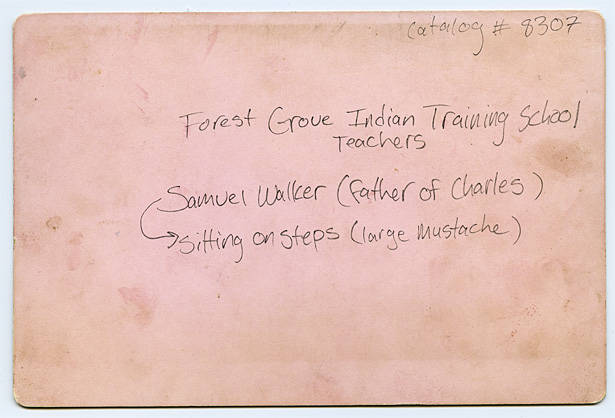 Catalog # 8307
Forest Grove Indian Training School
Teachers
Samuel Walker (father of Charles)
→ Sitting on steps (large mustache)